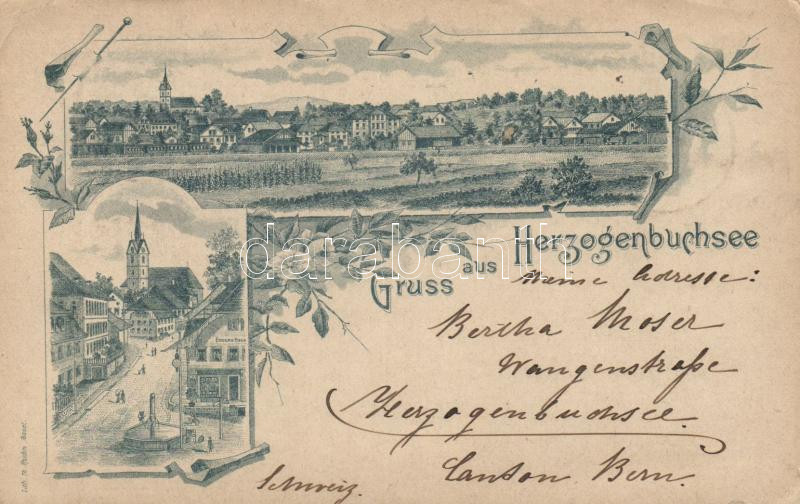 Gruss aus Herzogenbuchsee
Meine Adresse:
Bertha Moser
Wangenstraße
Herzogenbuchsee.
Canton Bern.
Schweiz.
darabanth.com